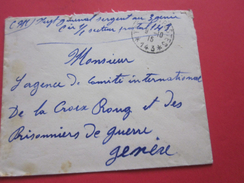 sergent au 3 genie
secteur postal 148
Monsieur
L'agence de Comité international
De la Croix Rouge et des
Prisonniers de guerre
genève
15
148